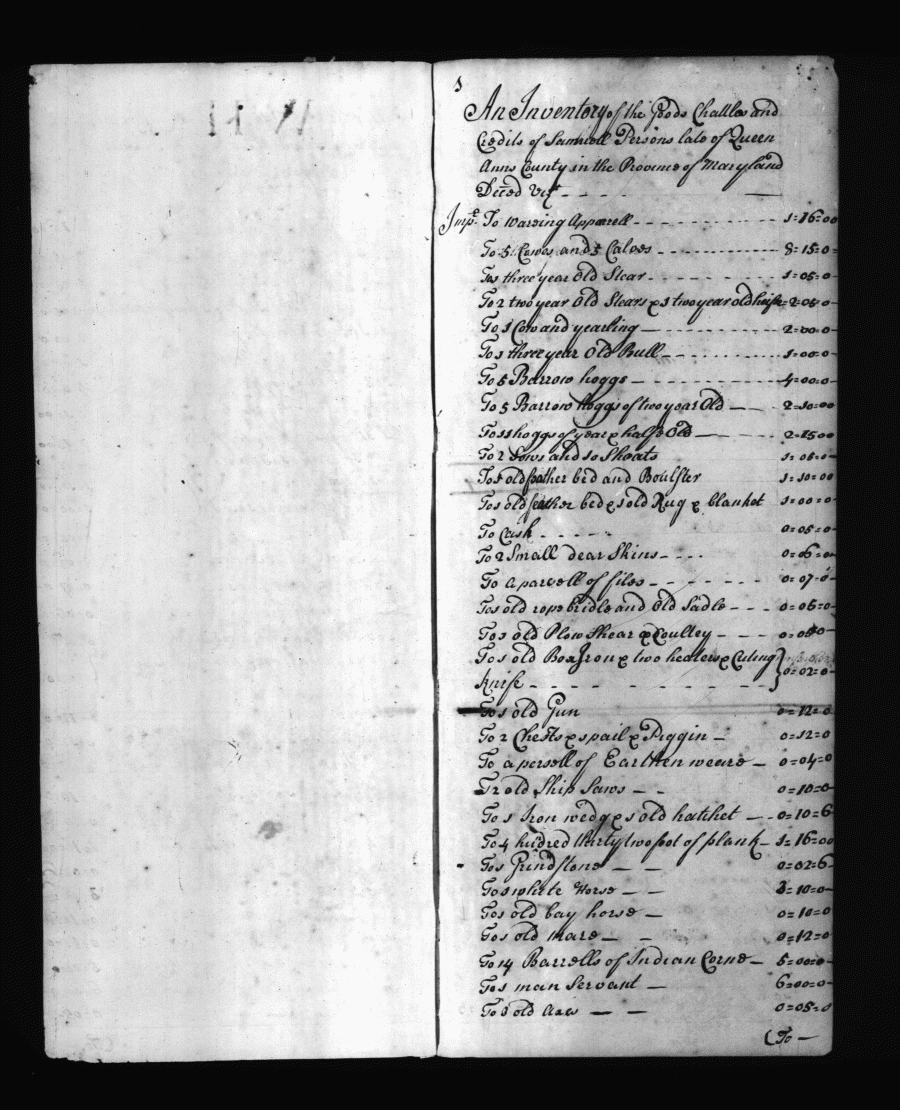 1
An Inventory of the Goods Challes and
Credits of Samuell Persons late of Queen
Anns County in the Province of Maryland
Deced Vizt
Imps. To waring Apparell - - - 1=16=00
To 5 Cowes and 5 Calves - - - 8=15=0
To 1 three year Old Stear - - - 1=05=0
To 2 two year Old Stears & 1 two year old heifer = 2=05=0
To 1 Cow and yearling - - - 2=00=0
To 1 three year Old Bull - - - 1=00=0
To 5 Barrow hoggs - - - 4=00=0
To 5 Barrow Hoggs of two year Old - - - 2=10=00
To 11 hoggs of year & half Old - - - 2=15=00
To 2 Sows and 10 Shoats 1=05=0
To 1 old feather bed and Boulster 1=10=00
To 1 old feather bed & 1 old Rug & blanket 1=00=0
To Cask - - - 0=05=0
To 2 Small dear Skins - - - 0=06=0
To a parcell of files - - - 0=07=0
To 1 old rope bridle and Old Sadle - - - 0=06=0
To 1 old Plow Shear & Coulley - - - 0=05=0
To 1 old Box Iron & two heaters & Cuting
knife - - - 0=02=0
To 1 old Gun 0=12=0
To 2 Chests & 1 pail & Piggin - 0=12=0
To a persell of Earthen weare - 0=04=0
To 2 old Ship Saws - - 0=10=0
To 1 Iron wedg & 1 old hatchet - - 0=10=6
To 4 hudred thirty two foot of plank - 1=16=00
To 1 Grindstone - - 0=02=6
To 1 white Horse - - 3=10=0
To 1 old bay horse - 0=10=0
To 1 old mare - - 0=12=0
To 14 Barrells of Indian Corne - 5=00=0
To 1 man Servant - 6=00=0
To 1 old axe - - 0=05=0
(To -